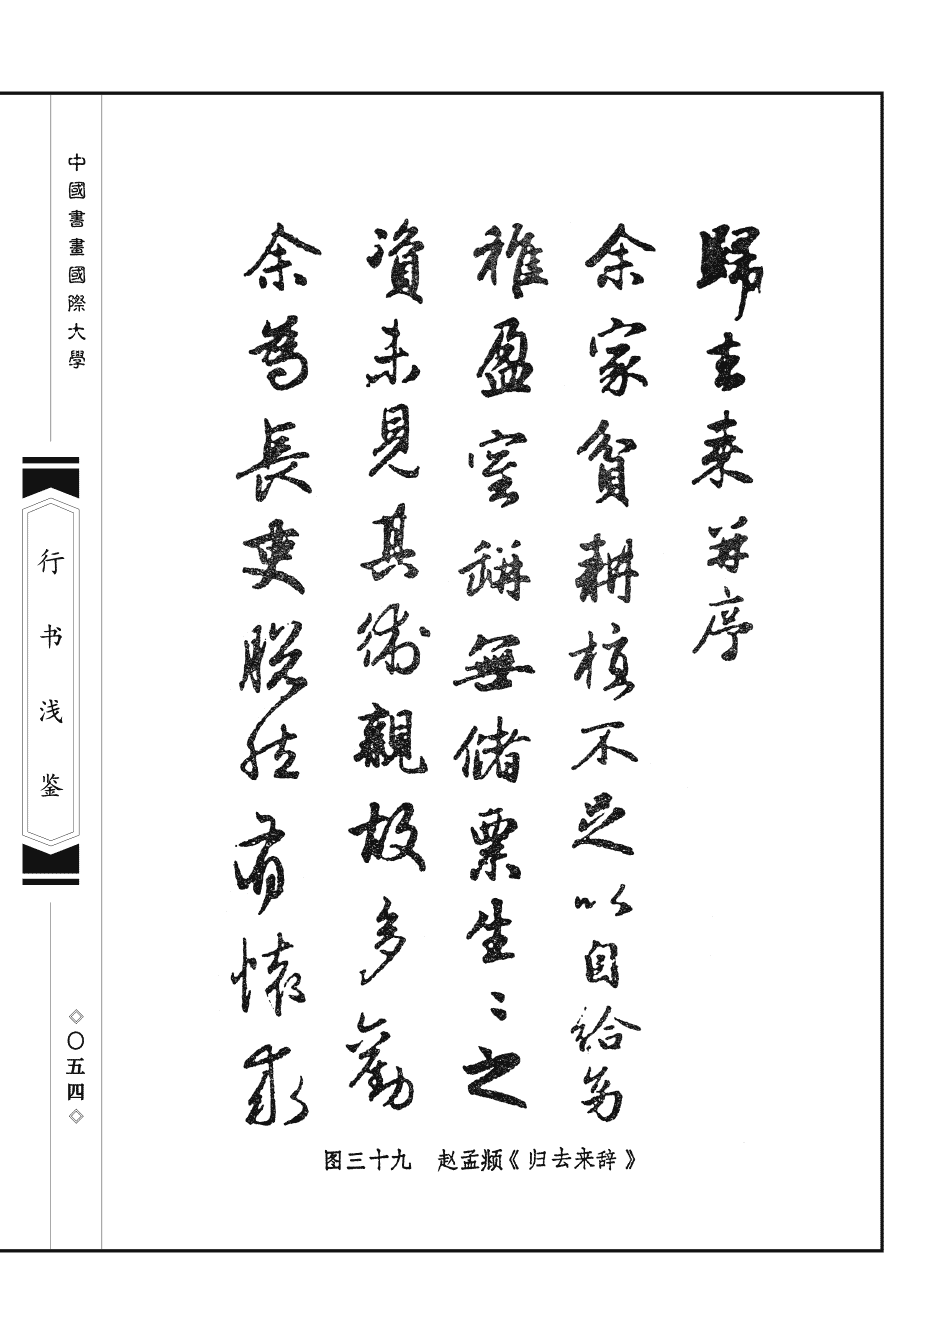 歸去来并序
余家貧耕植不足以自給幼
稚盈室缾無儲粟生〻之
資未見其術親故多勸
余為長吏脱然有懷求
图三十九 赵孟頫《归去来辞》
中國書畫國際大學
行书浅鉴
◇〇五四◇